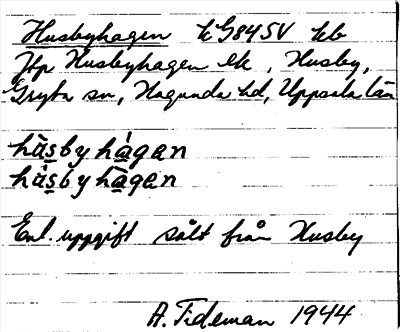 Husbyhagen EG84SV kb
Jfp Husbyhagen ek, Husby,
Gryta sn, Hagunda hd, Uppsala län
hàsby hágen
hásby hàgen
Enl. uppgift sålt från Husby
A. Tideman 1944